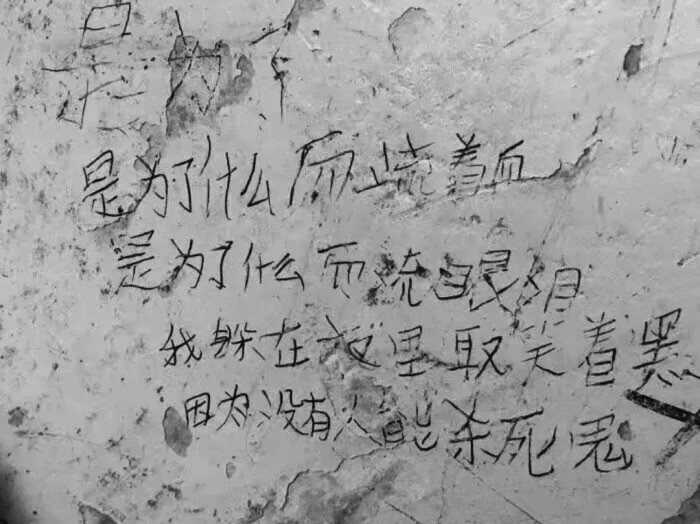 是为
是为了什么而流着血
是为了什么而流眼泪
我躲在这里取笑着黑
因为没有人能杀死鬼